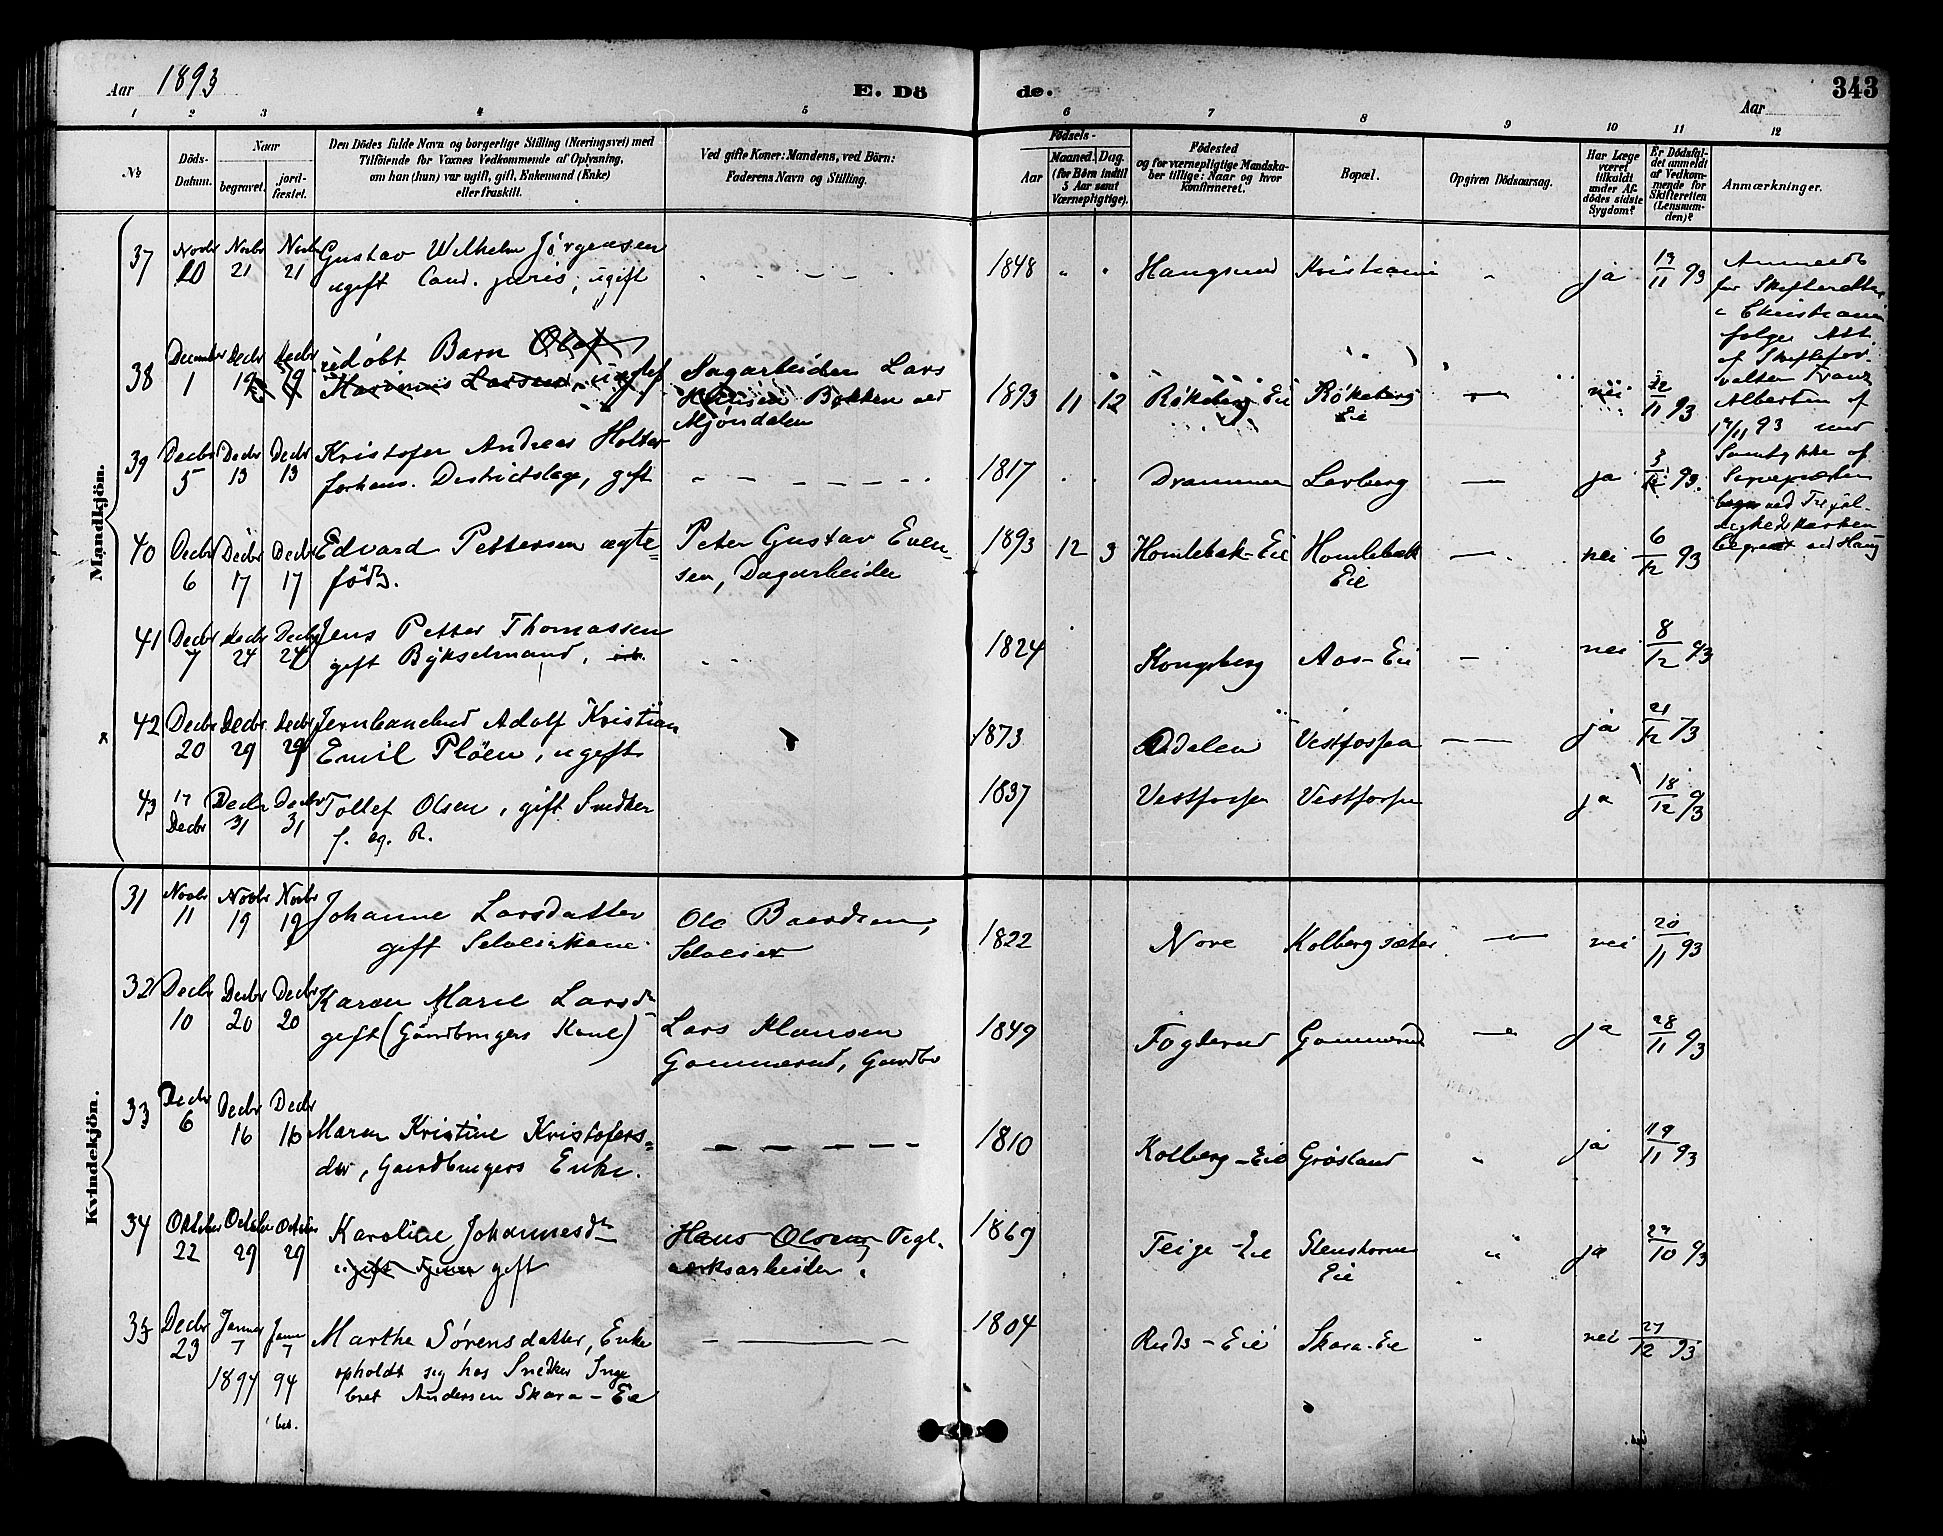 Aar 1893
E. Dö de.
343
Aar
1 2 3 4 5 6 7 8 9 10 11 12
№
Döds-Datum.
Naar
begravet.
jord-fæstet.
Den Dödes fulde Navn og borgerlige Stilling (Næringsvei) med
Tilföiende for Voxnes Vedkommende af Oplysning,
om han (hun) var ugift, gift, Enkemand (Enke)
eller fraskilt.
Ved gifte Koner: Mandens, ved Börn:
Faderens Navn og Stilling.
Födsels-
Aar
Maaned. Dag.
(for Börn indtil
5 Aar samt
Værnepligtige).
Födested
og for værnepligtige Mandska-
ber tillige: Naar og hvor
konfirmeret.
Bopæl.
Opgiven Dödsaarsag.
Har Læge
været
tilkaldt
under Af-
dödes sidste
Sygdom?
Er Dödsfal-
det anmeldt
af Vedkom-
mende for
Skifteretten
(Lensman-
den)?
Anmærkninger.
Mandkjön.
37 Novbr 10 Novbr 21 Novbr 21 Gustav Wilhelm Jörgensen
ugift Cand. juris, ugift
1848 Haugsund Kristiania ja 13/11 93
Anmeldt
for Skifteretten
i Christiania
følge Att.
af Skiftefor
valter Franz
Albertsen af
17/11 93 med
Samtykke af
Sognepræsten
begr ved Trefol-
dighedskirken
begravet ved Haug
38 December 1 Decbr 19 Decbr 9 udøbt Barn Olaf
Marinus Larsen, ugift
Sagarbeider Lars
Hansen Bakken ved
Mjöndalen
1893 11 12 Røkeberg Eie Røkeberg Eie nei 22/11 93
39 Decbr 5 Decbr 13 Decbr 13 Kristofer Andreas Holter
forhenv. Districtslæge, gift
1817 Drammen Loeberg ja 5/12 93.
40 Decbr 6 Decbr 17 Decbr 17 Edvard Pettersen ægte=
födt.
Peter Gustav Even-
sen, Dagarbeider
1893 12 3 Homlebæk-Eie Homlebæk Eie nei 6/12 93
41 Decbr 7 Decbr 24 Decbr 24 Jens Petter Thomassen
gift Bÿkselmand,
1824 Kongsberg Aas-Eie nei 8/12 93
42 Decbr 20 Decbr 29 Decbr 29 Jernbanebud Adolf Kristian
Emil Plöen, ugift
1873 Aadalen Vestfossen ja 21/12 93
43 17 Decbr Decbr 31 Decbr 31 Tollef Olsen, gift Snedker
f. og. R.
1837 Vestfossen Vestfossen ja 18/12 93
Kvindekjön.
31 Novbr 11 Novbr 19 Novbr 19 Johanne Larsdatter
gift Selveierkone.
Ole Baardsen,
Selveier
1822 Nore Kolbergsæter nei 20/11 93
32 Decbr 10 Decbr 20 Decbr 20 Karen Marie Larsdr
gift (Gaardbrugers Kone)
Lars Hansen
Gommerud, Gaardbr
1849 Foglerud Gommerud ja 28/11 93
33 Decbr 6 Decbr 16 Decbr 16 Maren Kristine Kristofers=
dtr, Gaardbrugers Enke.
1810 Kolberg-Eie Grøsland ja 19/11 93
34 Oktober 22 Octobr 29 Octobr 29 Karoline Johannesdr
ugift Tjener gift
Hans Olsen, Tegl.
værksarbeider.
1869 Teige-Eie Stenshorne Eie ja 27/10 93
35 Decbr 23 Januar 7 1894 Janu 7 94 Marthe Sørensdatter, Enke
opholdt sig hos Snedker Inge
bret Andersen Skara-Eie
1804 Ruds-Eie Skara-Eie nei 27/12 93